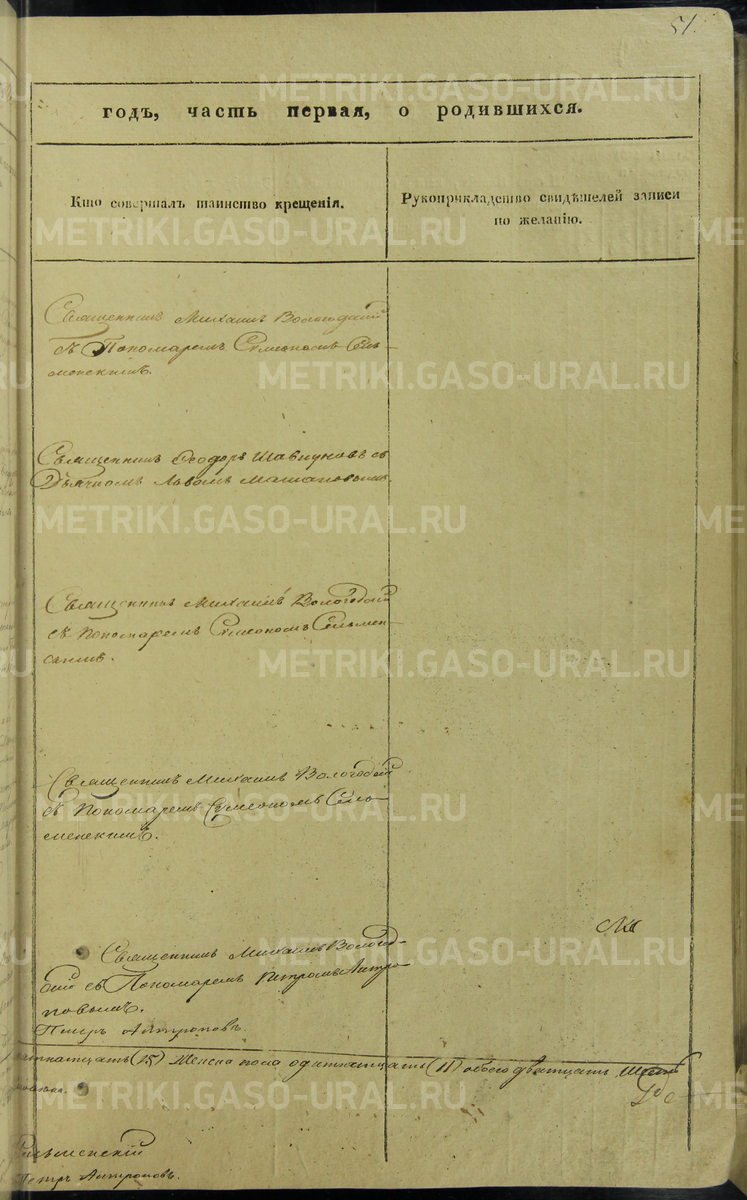 51.
годъ, часть первая, о родившихся.
Кто совершалъ таинство крещенія.
Рукоприкладство свидѣтелей записи
по желанію.
Священникъ Михаилъ Вологодскій
съ Пономаремъ Симеономъ Сель
менскимъ.
Священникъ Ѳеодоръ Шавкуновъ съ
Дьячкомъ Львомъ
Священникъ Михаилъ Вологодскій
съ Пономаремъ Симеономъ Сельмен-
скимъ.
Священникъ Михаилъ Вологодскій
съ Пономаремъ Симеономъ Сель-
менскимъ.
Священникъ Михаилъ Вологод-
скій съ Пономаремъ Петромъ Антро-
повымъ.
Петръ Антроповъ.
(15) Женска пола одиннатцать (11) обоего дватцать
Петръ Антроповъ.
METRIKI.GASO-URAL.RU